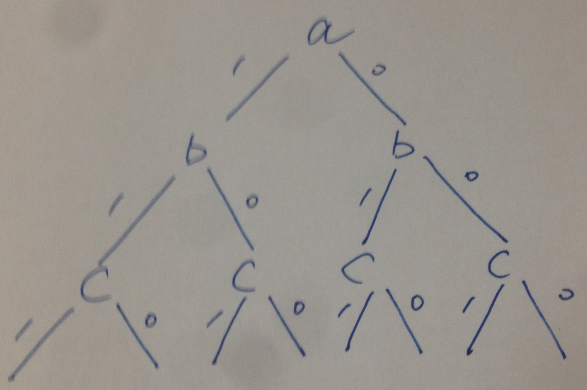 a
1 0
b b
1 0 1 0
C C C C
1 0 1 0 1 0 1 0